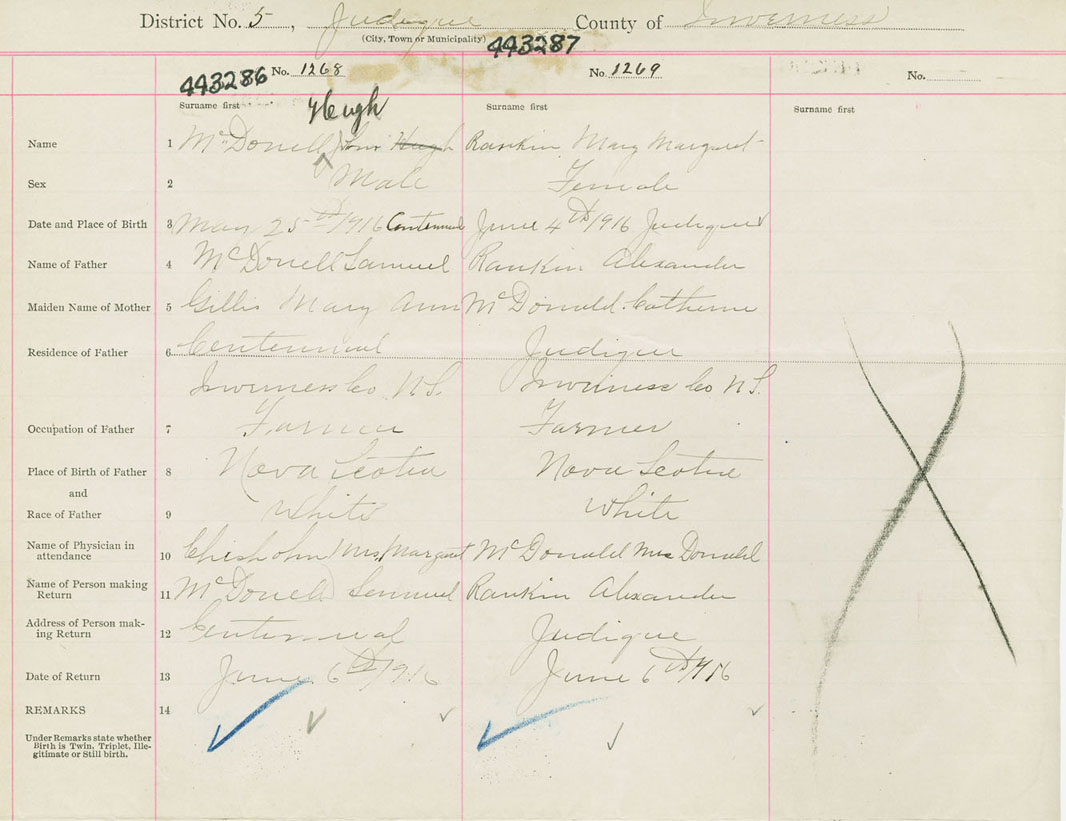 District No. 5, Judique County of Inverness
(City, Town or Municipality)
443286 No. 1268
443287 No. 1269
No.
Surname first Hugh
Surname first
Surname first
Name 1 McDonell John Hugh Rankin Mary Margaret
Sex 2 Male Female
Date and Place of Birth 3 May 25th 1916 Centennial June 4th 1916 Judique
Name of Father 4 McDonell Samuel Rankin Alexander
Maiden Name of Mother 5 Gillis Mary Ann McDonald Catherine
Residence of Father 6 Centennial Judique
Inverness Co N.S. Inverness Co N.S.
Occupation of Father 7 Farmer Farmer
Place of Birth of Father 8 Nova Scotia Nova Scotia
and
Race of Father 9 White White
Name of Physician in
attendance 10 Chisholm Mrs Margaret McDonald Mrs Donald
Name of Person making
Return 11 McDonell Samuel Rankin Alexander
Address of Person mak-
ing Return 12 Centennial Judique
Date of Return 13 June 6th 1916 June 6th 1916
REMARKS 14
Under Remarks state whether
Birth is Twin, Triplet, Ille-
gitimate or Still birth.